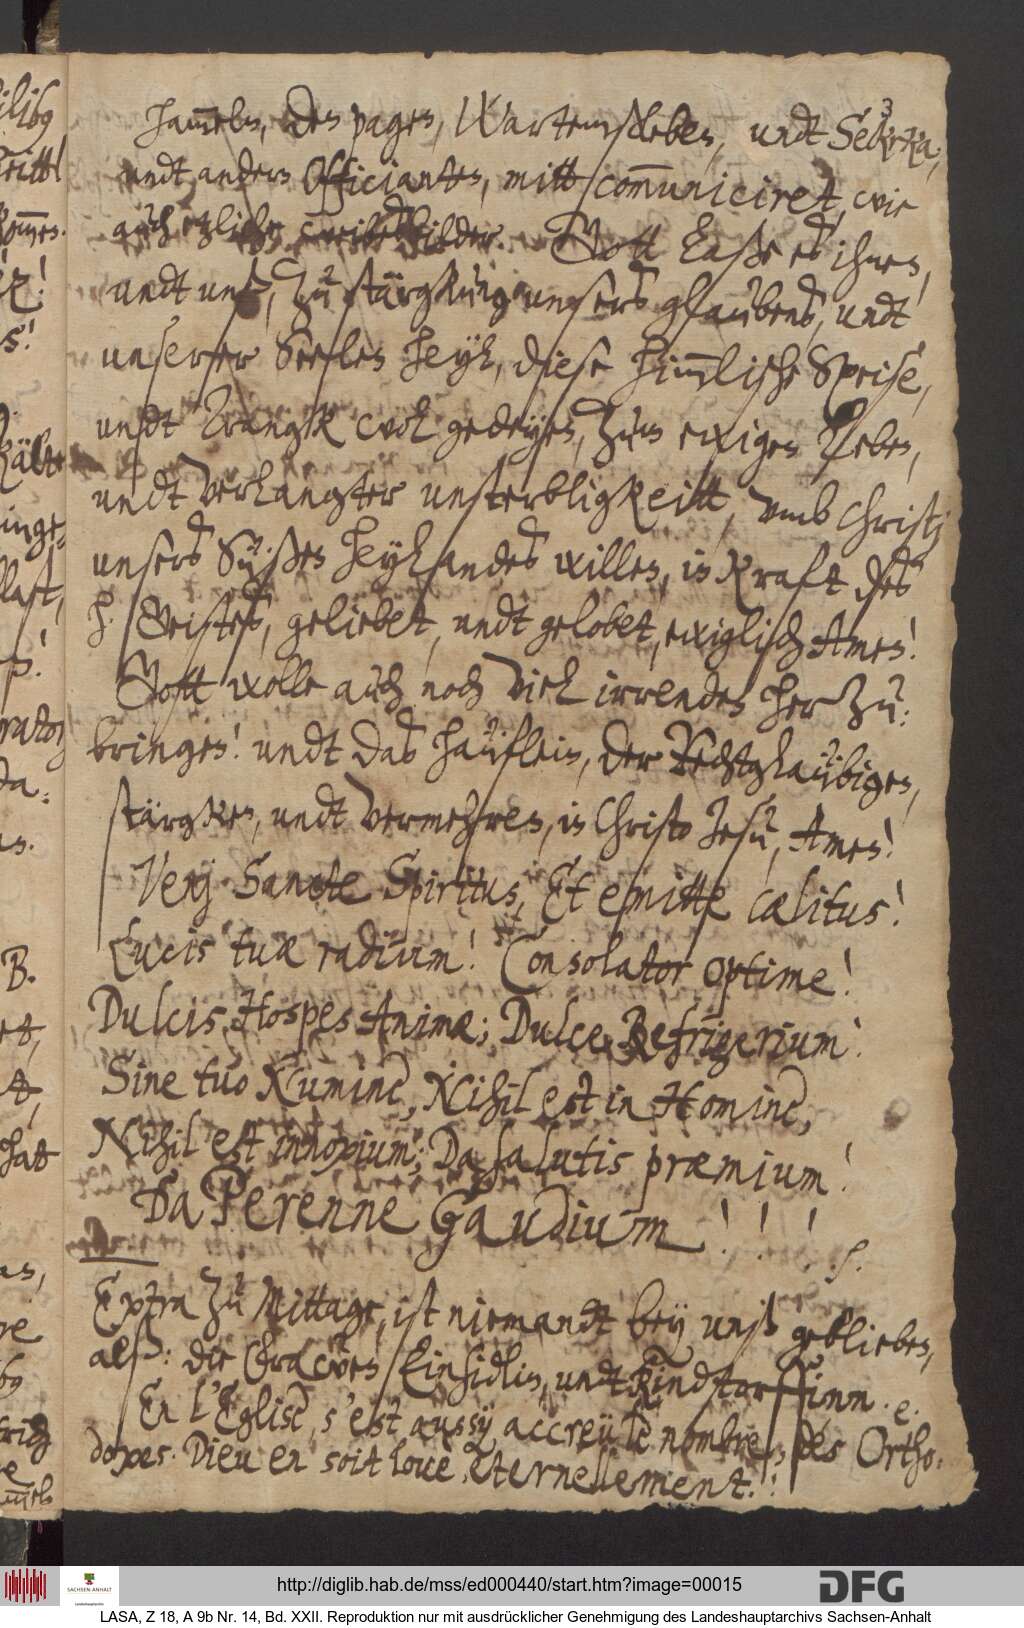 3
Ham̄eln, den pagen, Wartemßleben, undt Seckrka,
undt andern Officianten, mitt com̄uniciret, wie
auch etzliche weibesbilder. Gott laße es ihnen,
undt unß, zu stärgkung unsers glaubens, undt
unserer Seelen heyl, diese him̄lische Speise,
undt Trangk wol gedeyen, zum ewigen Leben,
undt verlangter unsterbligkeitt, umb Christj
unsers Süßen Heylandes willen, in Kraft des
h. Geistes, geliebet, undt gelobet, ewiglich Amen!
Gott wolle auch noch viel irrenden herzu-
bringen! undt das häuflein, der Rechtglaübigen,
stärgken, undt vermehren, in Christo Jesu, Amen!
Venj Sancte Spiritus, Et emitte cælitus!
Lucis tuæ radium! Consolator optime!
Dulcis Hospes Animæ; Dulce Refrigerium!
Sine tuo Numine, Nihil est in Homine,
Nihil est innoxium; Da salutis præmium!
Da Perenne Gaudium!!! /.
Extra zu Mittage, ist niemandt bey unß geblieben,
alß: die Gräven Einsidlin, undt Kindstorffinn. e.
En l'Eglise, s'est aussy accreü le nombre, des Ortho-
doxes. Dieu en soit loue, eternellement!:
http://diglib.hab.de/mss/ed000440/start.htm?image=00015
DFG
SACHSEN-ANHALT
LASA, Z 18, A 9b Nr. 14, Bd. XXII. Reproduktion nur mit ausdrücklicher Genehmigung des Landeshauptarchivs Sachsen-Anhalt